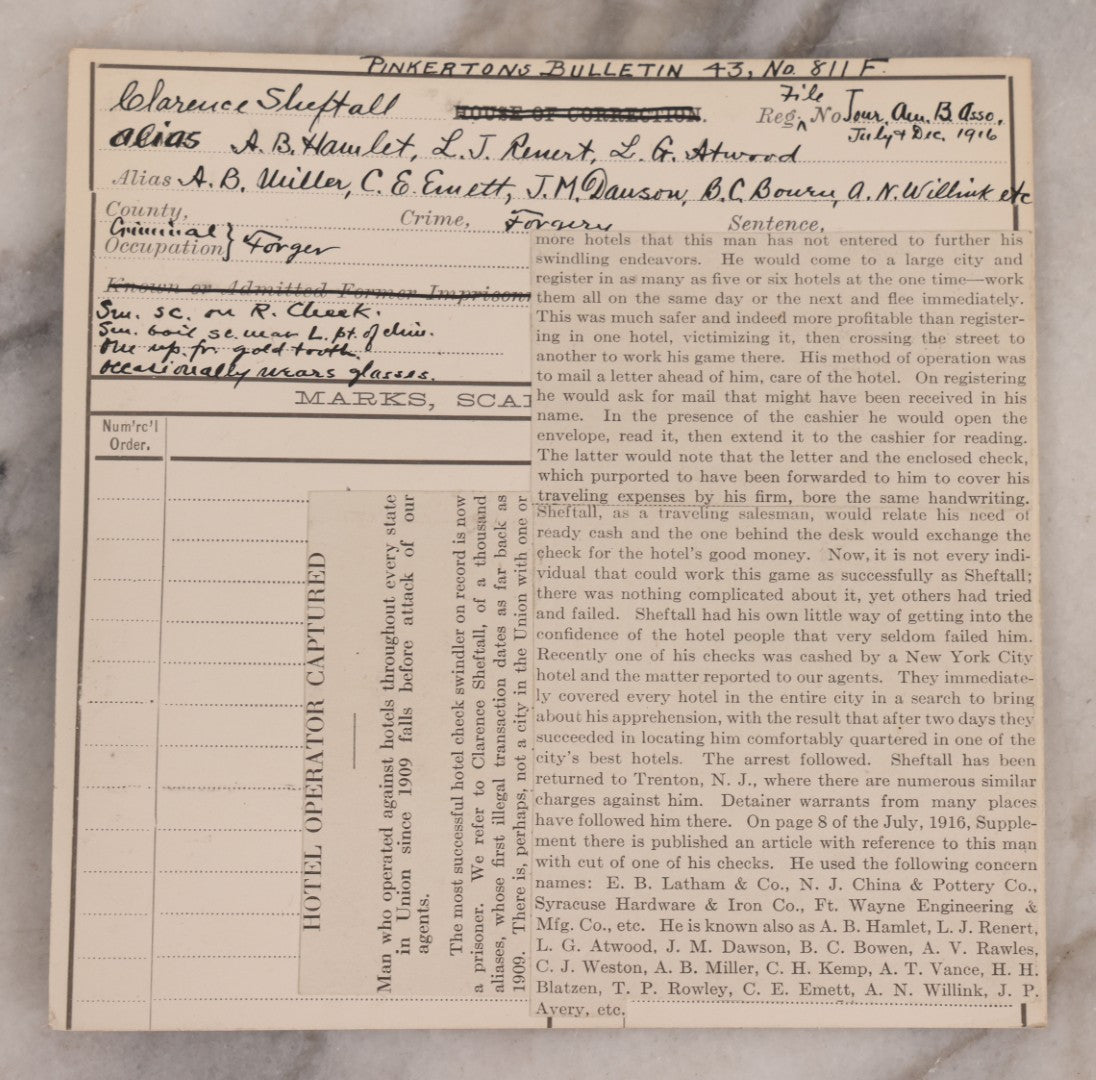 PINKERTONS BULLETIN 43, No. 811 F.
Clarence Sheftall
HOUSE OF CORRECTION.
File
Reg. No Jour. Am. B. Asso.
July & Dec. 1916
alias A. B. Hamlet, L. J. Renert, L. G. Atwood
Alias A. B. Miller, C. E. Emett, J. M. Dawson, B. C. Bourn, A. N. Willink etc
County, Crime, Forgery Sentence,
Criminal
Occupation} Forger
Known or Admitted Former Imprison
Sm. sc. on R. Cheek.
Sm. boil sc. near L. pt. of chin.
One up. fr. gold tooth.
occasionally wears glasses.
MARKS, SCA
Num'rc'l
Order.
HOTEL OPERATOR CAPTURED
Man who operated against hotels throughout every state
in Union since 1909 falls before attack of our
agents.
The most successful hotel check swindler on record is now
a prisoner. We refer to Clarence Sheftall, of a thousand
aliases, whose first illegal transaction dates as far back as
1909. There is, perhaps, not a city in the Union with one or
more hotels that this man has not entered to further his
swindling endeavors. He would come to a large city and
register in as many as five or six hotels at the one time—work
them all on the same day or the next and flee immediately.
This was much safer and indeed more profitable than register-
ing in one hotel, victimizing it, then crossing the street to
another to work his game there. His method of operation was
to mail a letter ahead of him, care of the hotel. On registering
he would ask for mail that might have been received in his
name. In the presence of the cashier he would open the
envelope, read it, then extend it to the cashier for reading.
The latter would note that the letter and the enclosed check,
which purported to have been forwarded to him to cover his
traveling expenses by his firm, bore the same handwriting.
Sheftall, as a traveling salesman, would relate his need of
ready cash and the one behind the desk would exchange the
check for the hotel's good money. Now, it is not every indi-
vidual that could work this game as successfully as Sheftall;
there was nothing complicated about it, yet others had tried
and failed. Sheftall had his own little way of getting into the
confidence of the hotel people that very seldom failed him.
Recently one of his checks was cashed by a New York City
hotel and the matter reported to our agents. They immediate-
ly covered every hotel in the entire city in a search to bring
about his apprehension, with the result that after two days they
succeeded in locating him comfortably quartered in one of the
city's best hotels. The arrest followed. Sheftall has been
returned to Trenton, N. J., where there are numerous similar
charges against him. Detainer warrants from many places
have followed him there. On page 8 of the July, 1916, Supple-
ment there is published an article with reference to this man
with cut of one of his checks. He used the following concern
names: E. B. Latham & Co., N. J. China & Pottery Co.,
Syracuse Hardware & Iron Co., Ft. Wayne Engineering &
Mfg. Co., etc. He is known also as A. B. Hamlet, L. J. Renert,
L. G. Atwood, J. M. Dawson, B. C. Bowen, A. V. Rawles,
C. J. Weston, A. B. Miller, C. H. Kemp, A. T. Vance, H. H.
Blatzen, T. P. Rowley, C. E. Emett, A. N. Willink, J. P.
Avery, etc.